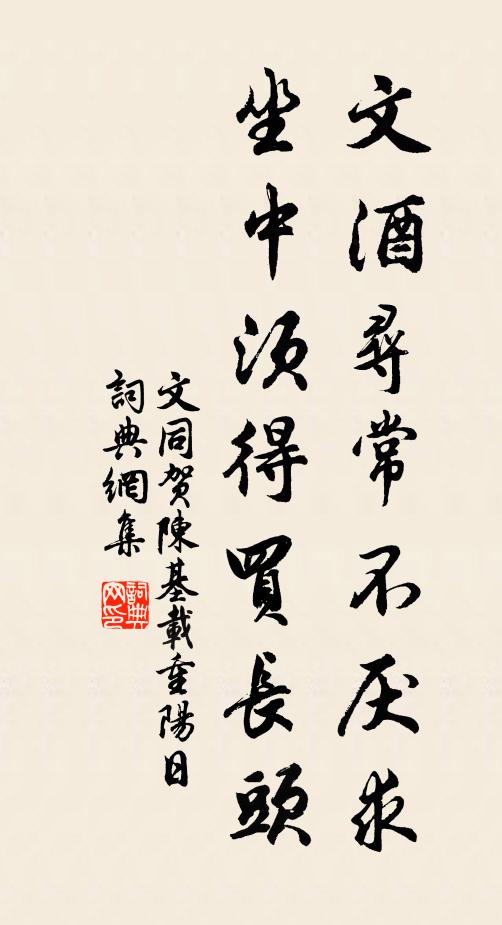 文酒尋常不厌求
坐中須得買長頭
文同賀陳基載重陽日
詞典網集
詞典网印